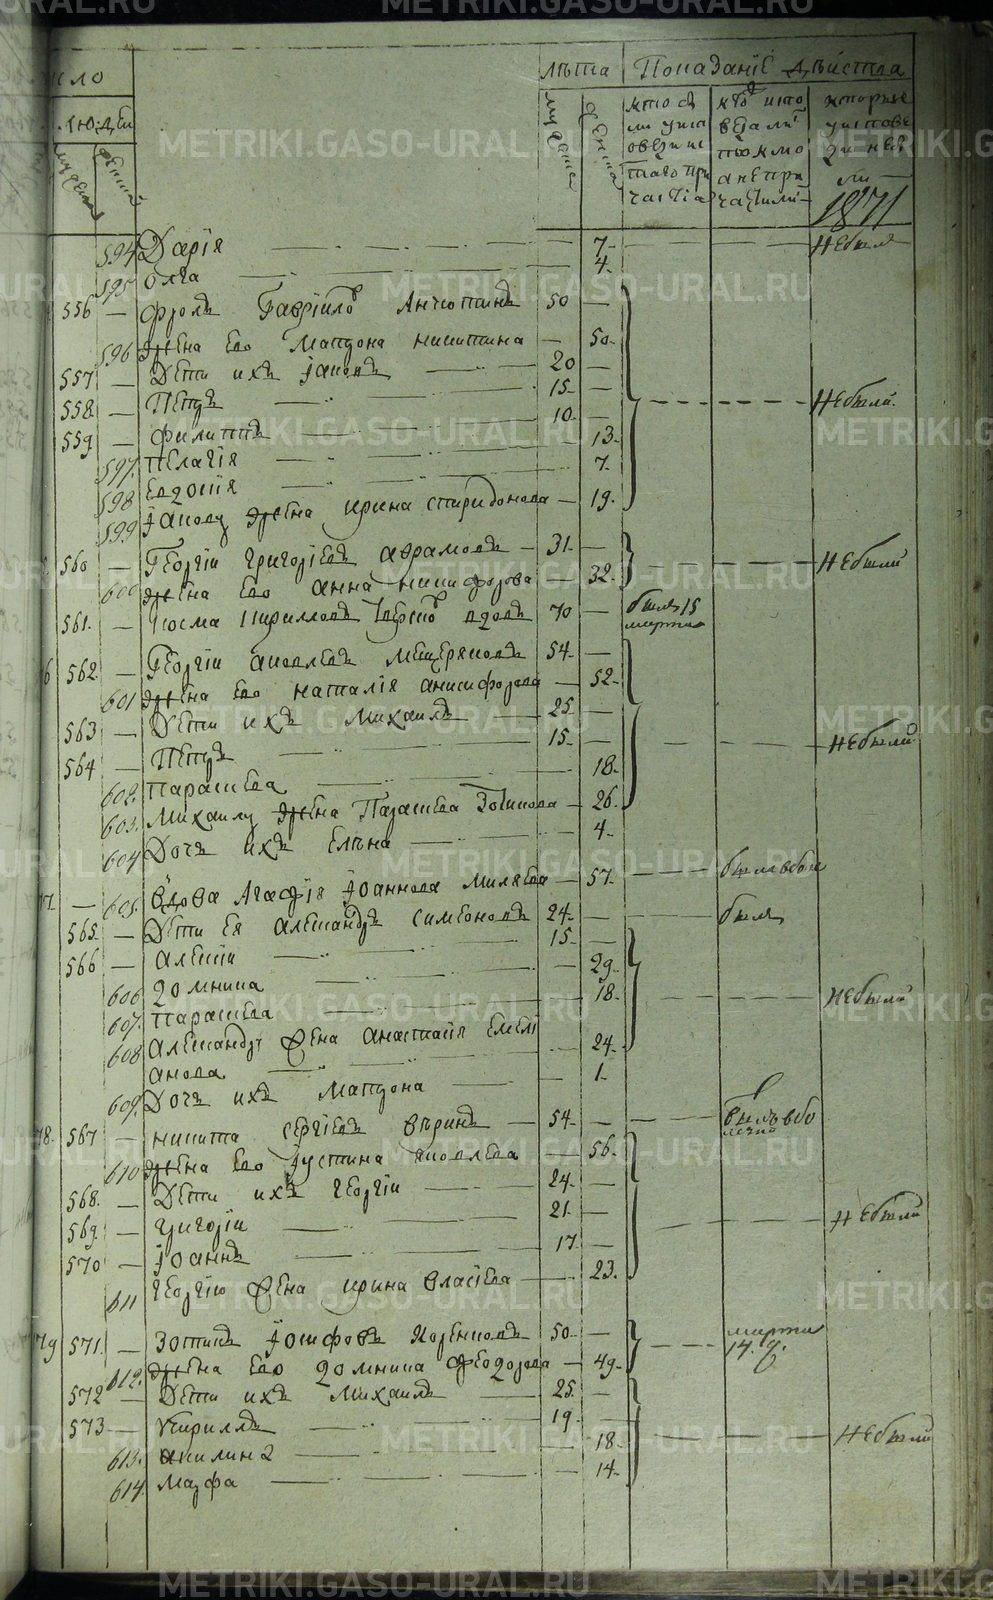 число
людей
мужеска
женска
лѣта
мужска
женска
Показанiе дѣйства
кто бы
ли у исп
овѣди и с
таго при
частiя
кто испо
вѣдали
токмо
а не при
частили
которые
у исповѣ
ди не бы
ли
1871
594 Дарiя 7 не были
595 Олга 4
556 Фролъ Гаврiиловъ Анчютинъ 50
596 Жена его Матрона Никитина 50
557 Дети ихъ Iаковъ 20
558 Петръ 15 не были
559 Филиппъ 10
597 Пелагiя 13
598 Евдокiя 7
599 Iакову жена Ирина Спиридонова 19
560 Георгiи Григорiевъ Аврамовъ 31 не были
600 Жена его Анна Никифорова 32
561 Косма Кирилловъ вдовъ 70 былъ 15 марта
6 562 Георгiи Яковлевъ Мещеряковъ 54
601 Жена его Наталiя Анисифорова 52
563 Дети ихъ Михаилъ 25
564 Петръ 15 не были
602 Параскева 18
603 Михаилу жена Параскева Зотикова 26
604 Дочь ихъ Елѣна 4
77 605 Вдова Агафiя Iоаннова Миляева 57
565 Дети ея Александръ Симеоновъ 24 былъ
566 Алексiи 15
606 Домника 29
607 Параскева 18 не были
608 Александру жена Анастасiя Емелi
анова 24
609 Дочь ихъ Матрона 1
78 567 Никита Сергiевъ Въринъ 54
610 Жена его Iустина Яковлева 56
568 Дети ихъ Георгiи 24
569 Григорiи 21 не были
570 Iоаннъ 17
611 Георгiю жена Ирина Власiева 23
79 571 Зотикъ Iосифовъ Коренковъ 50 марта 14
612 Жена его Домника Феодорова 49
572 Дети ихъ Михаилъ 25
573 Кириллъ 19
613 Акилина 18 не были
614 Марфа 14
METRIKI.GASO-URAL.RU